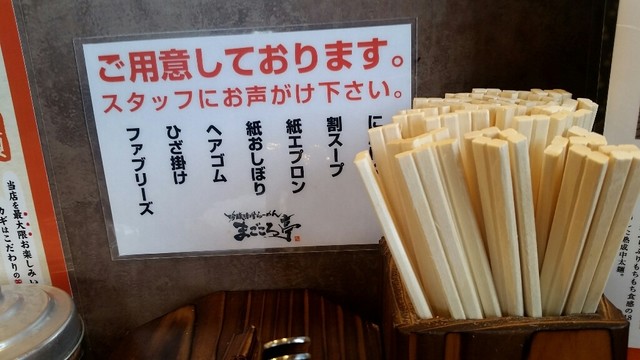 ご用意しております。
スタッフにお声がけ下さい。
に
割スープ
紙エプロン
紙おしぼり
ヘアゴム
ひざ掛け
ファブリーズ
まごころ亭
当店を最大限お楽しみい
カギはこだわりの
もちもち食感の
熟成中太麺。